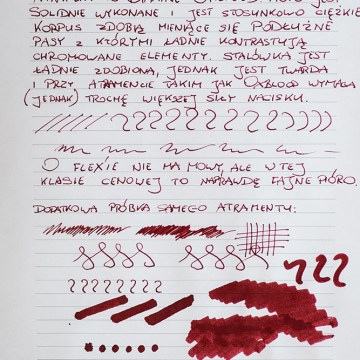 SOLIDNIE WYKONANE I JEST STOSUNKOWO CIĘŻKIE
KORPUS ZDOBIĄ MIENIĄCE SIĘ PODŁUŻNE
PASY Z KTÓRYMI ŁADNIE KONTRASTUJĄ
CHROMOWANE ELEMENTY. STALÓWKA JEST
ŁADNIE ZDOBIONA, JEDNAK JEST TWARDA
I PRZY ATRAMENCIE TAKIM JAK OXBLOOD WYMAGA
(JEDNAK) TROCHĘ WIĘKSZEJ SIŁY NACISKU.
O FLEX'IE NIE MA MOWY, ALE W TEJ
KLASIE CENOWEJ TO NAPRAWDĘ FAJNE PIÓRO.
DODATKOWA PRÓBKA SAMEGO ATRAMENTU: